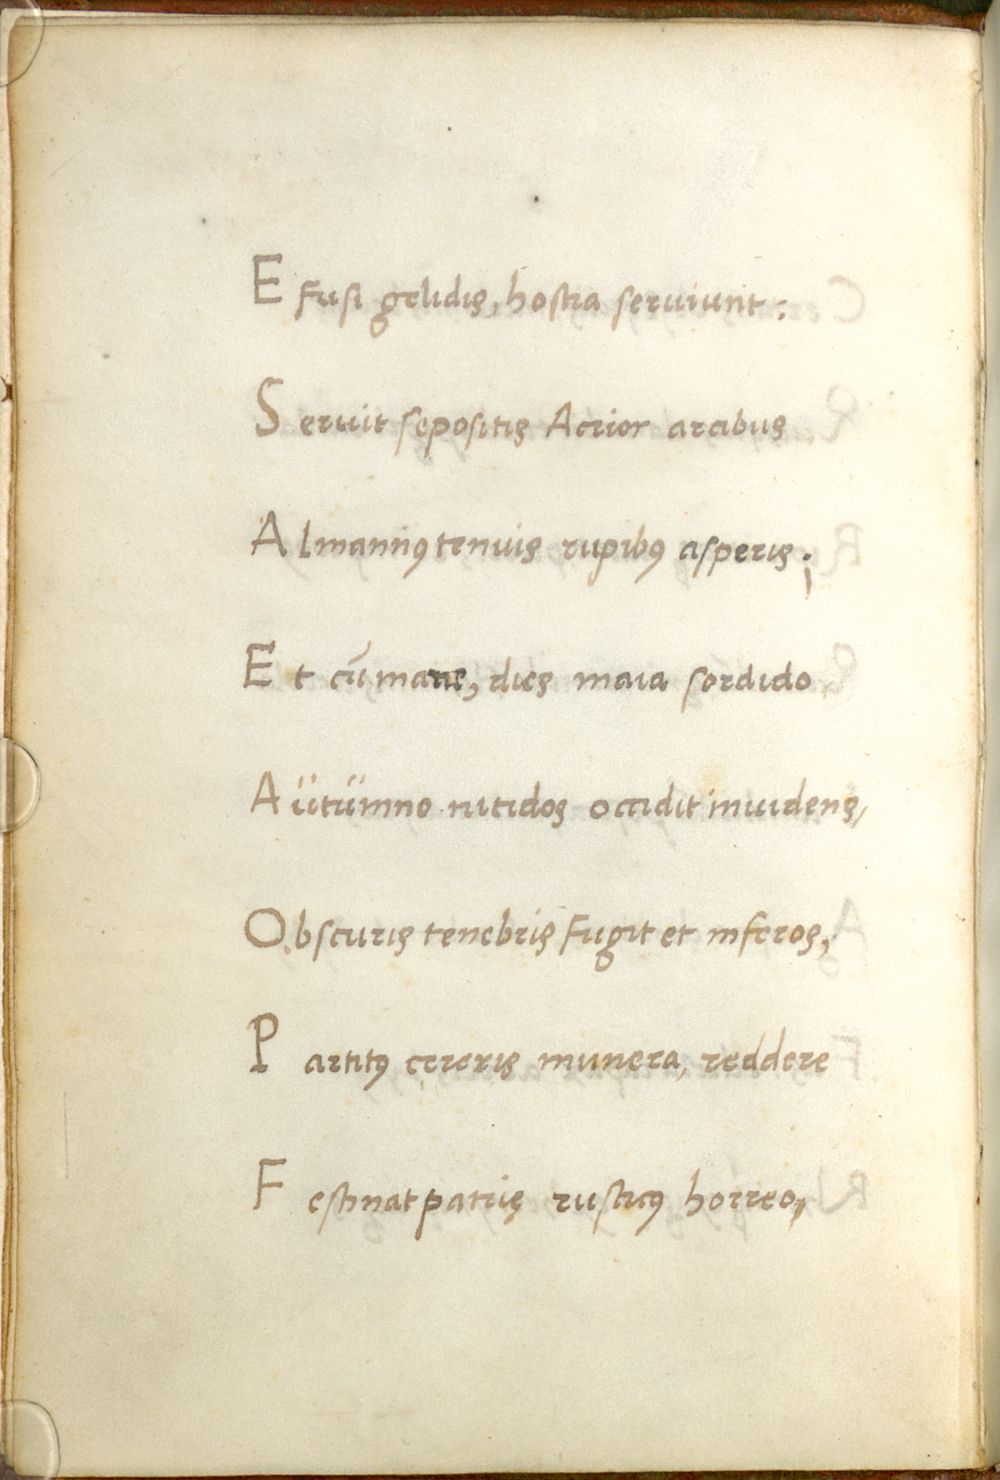 E fusi gelidis, hostia seruiunt:
S eruit sepositis Acrior arcibus
A lmannꝰ tenuis rupibꝰ asperis;
E t cū mane, dies maia sordido
A ütümno nitidos occidit inuidens,
O bscuris tenebris Fugit et inferos,
P artitꝰ cereris munera, reddere
F estinat patriis rusticꝰ horreo,